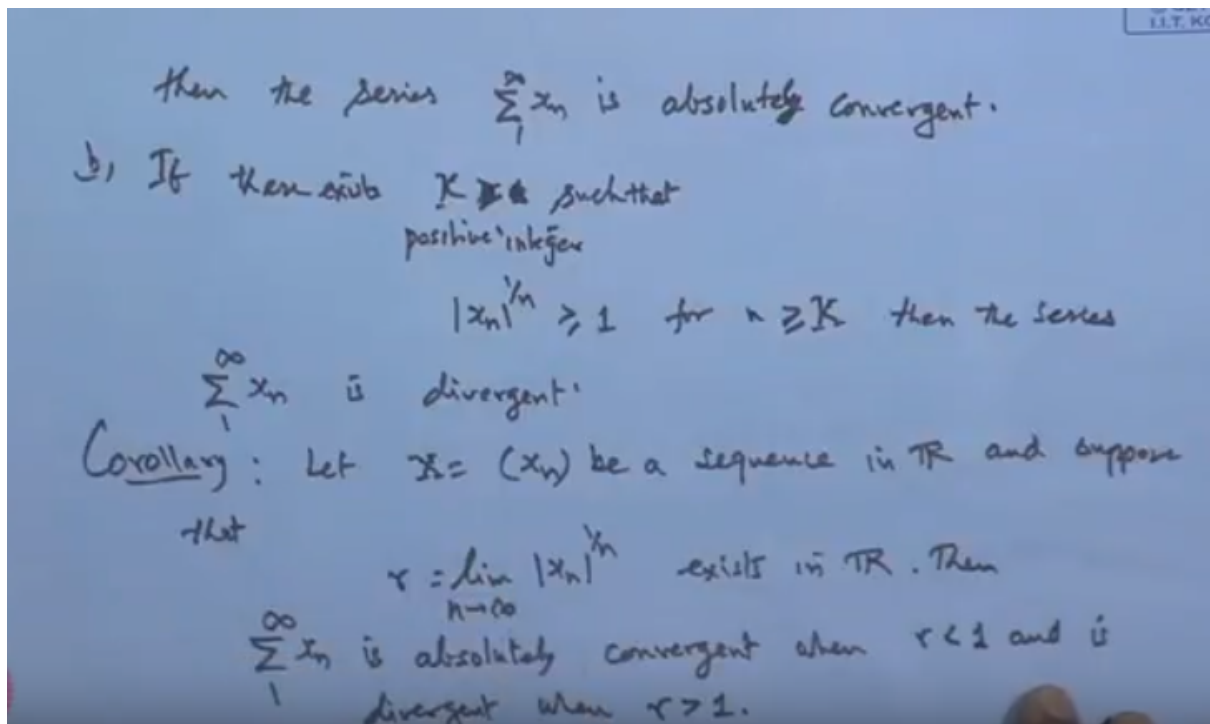 I.I.T. KG
then the series ∞ Σ 1 xn is absolutely convergent.
b, If there exists K such that
positive integer
|xn|^1/n ≥ 1 for n ≥ K then the series
∞ Σ 1 xn is divergent.
Corollary: Let X = (xn) be a sequence in R and suppose
that
r = lim n→∞ |xn|^1/n exists in R. Then
∞ Σ 1 xn is absolutely convergent when r < 1 and is
divergent when r > 1.